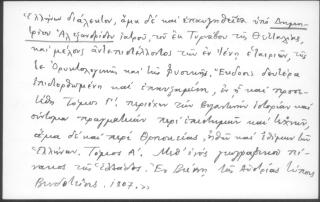 Ἑλλήνων διάλεκτον, ἅμα δέ καί ἐπαυξηθεῖσα ὑπό Δημη-
τρίου Ἀλεξανδρίδου ἰατροῦ, τοῦ ἐκ Τυρνάβου τῆς Θετταλίας,
καί μέλους ἀντεπιστέλλοντος τῶν ἐν Ἰένῃ ἑταιριῶν, τῆς
τε Ὀρυκτολογικῆς καί τῆς φυσικῆς. Ἔκδοσις δευτέρα
ἐπιδιορθωμένη καί ἐπηυξημένη, ἐν ᾗ καί προσε-
τέθη Τόμος Γ', περιέχων τήν Βυζαντινήν ἱστορίαν καί
σύντομα πραγματείαν περί ἐπιστημῶν καί τεχνῶν,
ἅμα δέ καί περί Θρησκείας, ἠθῶν καί ἐθίμων τῶν
Ἑλλήνων. Τόμος Α'. Μεθ' ἑνός γεωγραφικοῦ πί-
νακος τῆς Ἑλλάδος. Ἐν Βιέννῃ τῆς Αὐστρίας τύποις
1807.»